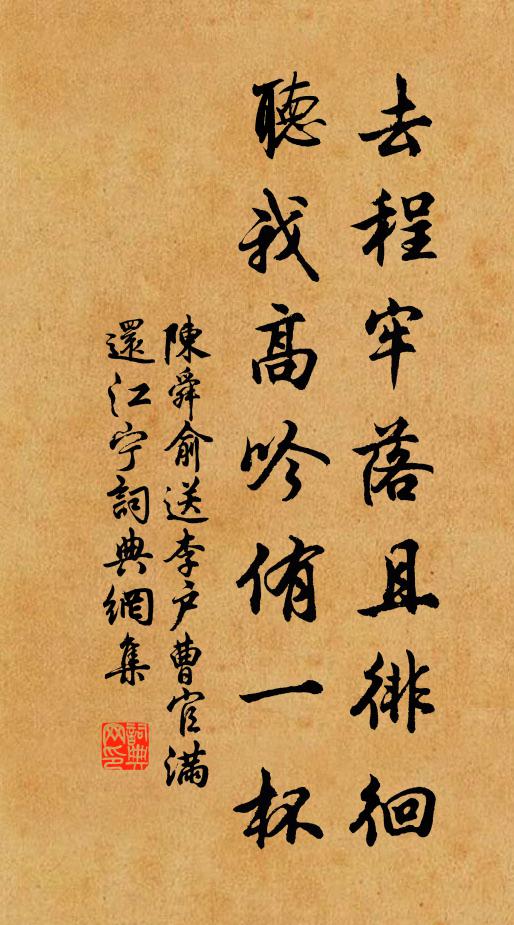 去程牢落且徘徊
聽我高吟侑一杯
陳舜俞送李户曹官滿
還江宁詞典網集
詞典
网印